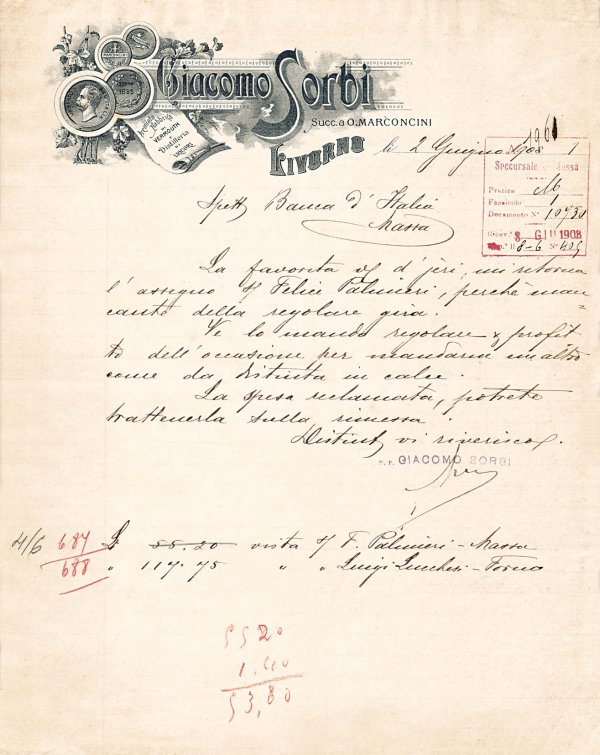 MARCONCINI
1895
Giacomo Sorbi
Succ. a O. MARCONCINI
LIVORNO
Premiata Fabbrica
di
VERMOUTH
e
Distilleria
di
LIQUORI
li 2 Giugno 1908
Succursale Massa
Pratica M
Fascicolo 1
Documento N° 10730
Ricev. 8 GIU 1908
8-6 N° 405
Spett Banca d'Italia
Massa
La favorita di d'jeri, mi ritorna
l'assegno s/ Felice Palmieri, perchè man
cante della regolare gira.
Ve lo mando regolare & profit
to dell'occasione per mandarvi un altro
come da distinta in calce.
La spesa reclamata, potrete
trattenerla sulla rimessa.
Distint vi riverisco
p. p. GIACOMO SORBI
4/6 687 L 55.20 vista s/ F. Palmieri - Massa
688 " 117.75 " " Luigi Lucchesi - Forno
55 20
1.40
53,80